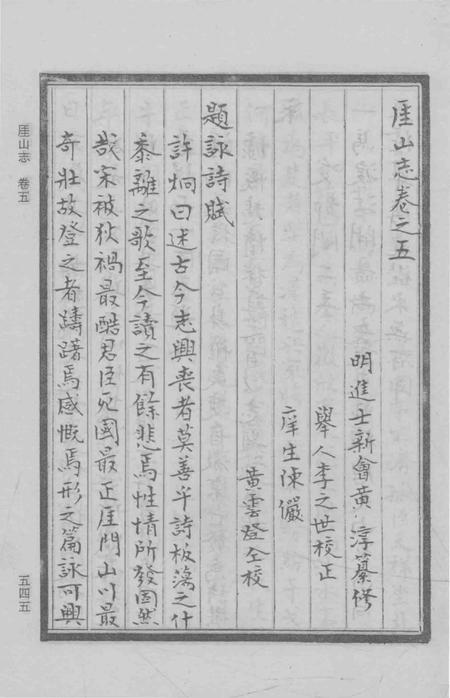 厓山志卷之五
明進士新會黄淳纂修
舉人李之世校正
庠生陳儼
黄雲登仝校
題詠詩賦
許炯曰述古今志興喪者莫善乎詩板蕩之什
黍離之歌至今讀之有餘悲焉性情所發固然
哉宋被狄禍最酷君臣死國最正厓門山川最
奇壯故登之者躊躇焉感慨焉形之篇詠可興
厓山志 卷五
五四五